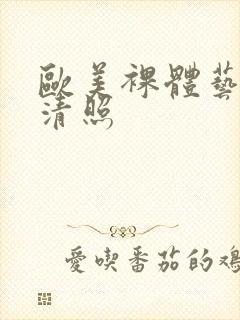 歐美裸體藝
清照
愛喫番茄的雞